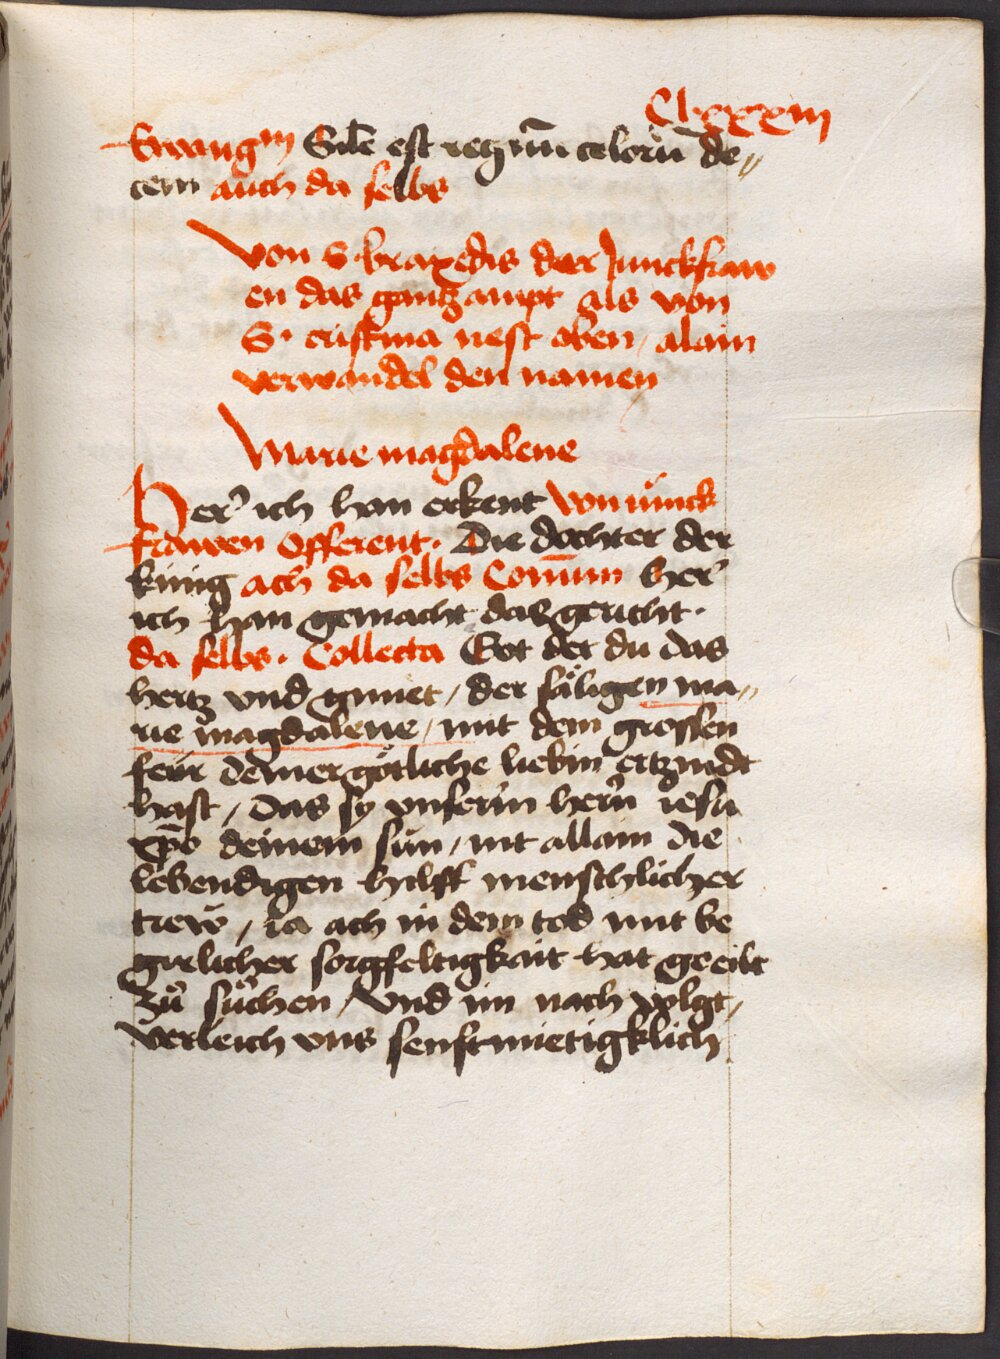 Clxxxiii
Ewangm Simile est regnũ celorũ de„
cem auch da selbs
Von S. braxedis der Junckfraw
en das gantz ampt als von
S. cristina nest oben / alain
verwandel den namen
Marie magdalene
Her ich han erkent von iunck
frawen Offerent. Die dochter der
künig ach da selbs Comun her
ich han gemacht das gericht.
da selbs. Collecta Got der du das
hertz vnd gmuet / der säligen ma„
rie magdalene / mit dem grossen
feür deiner götliche liebin ertzindt
hast / Das sy vnserm hern iesu
xpo deinem sun / nit allain die
lebendigen hilff menschlicher
trew / ia ach in dem tod mit be
girlicher sorgfeltigkait hat geeilt
zů sůchen / vnd im nach volgt /
verleich vns senftmietigklich